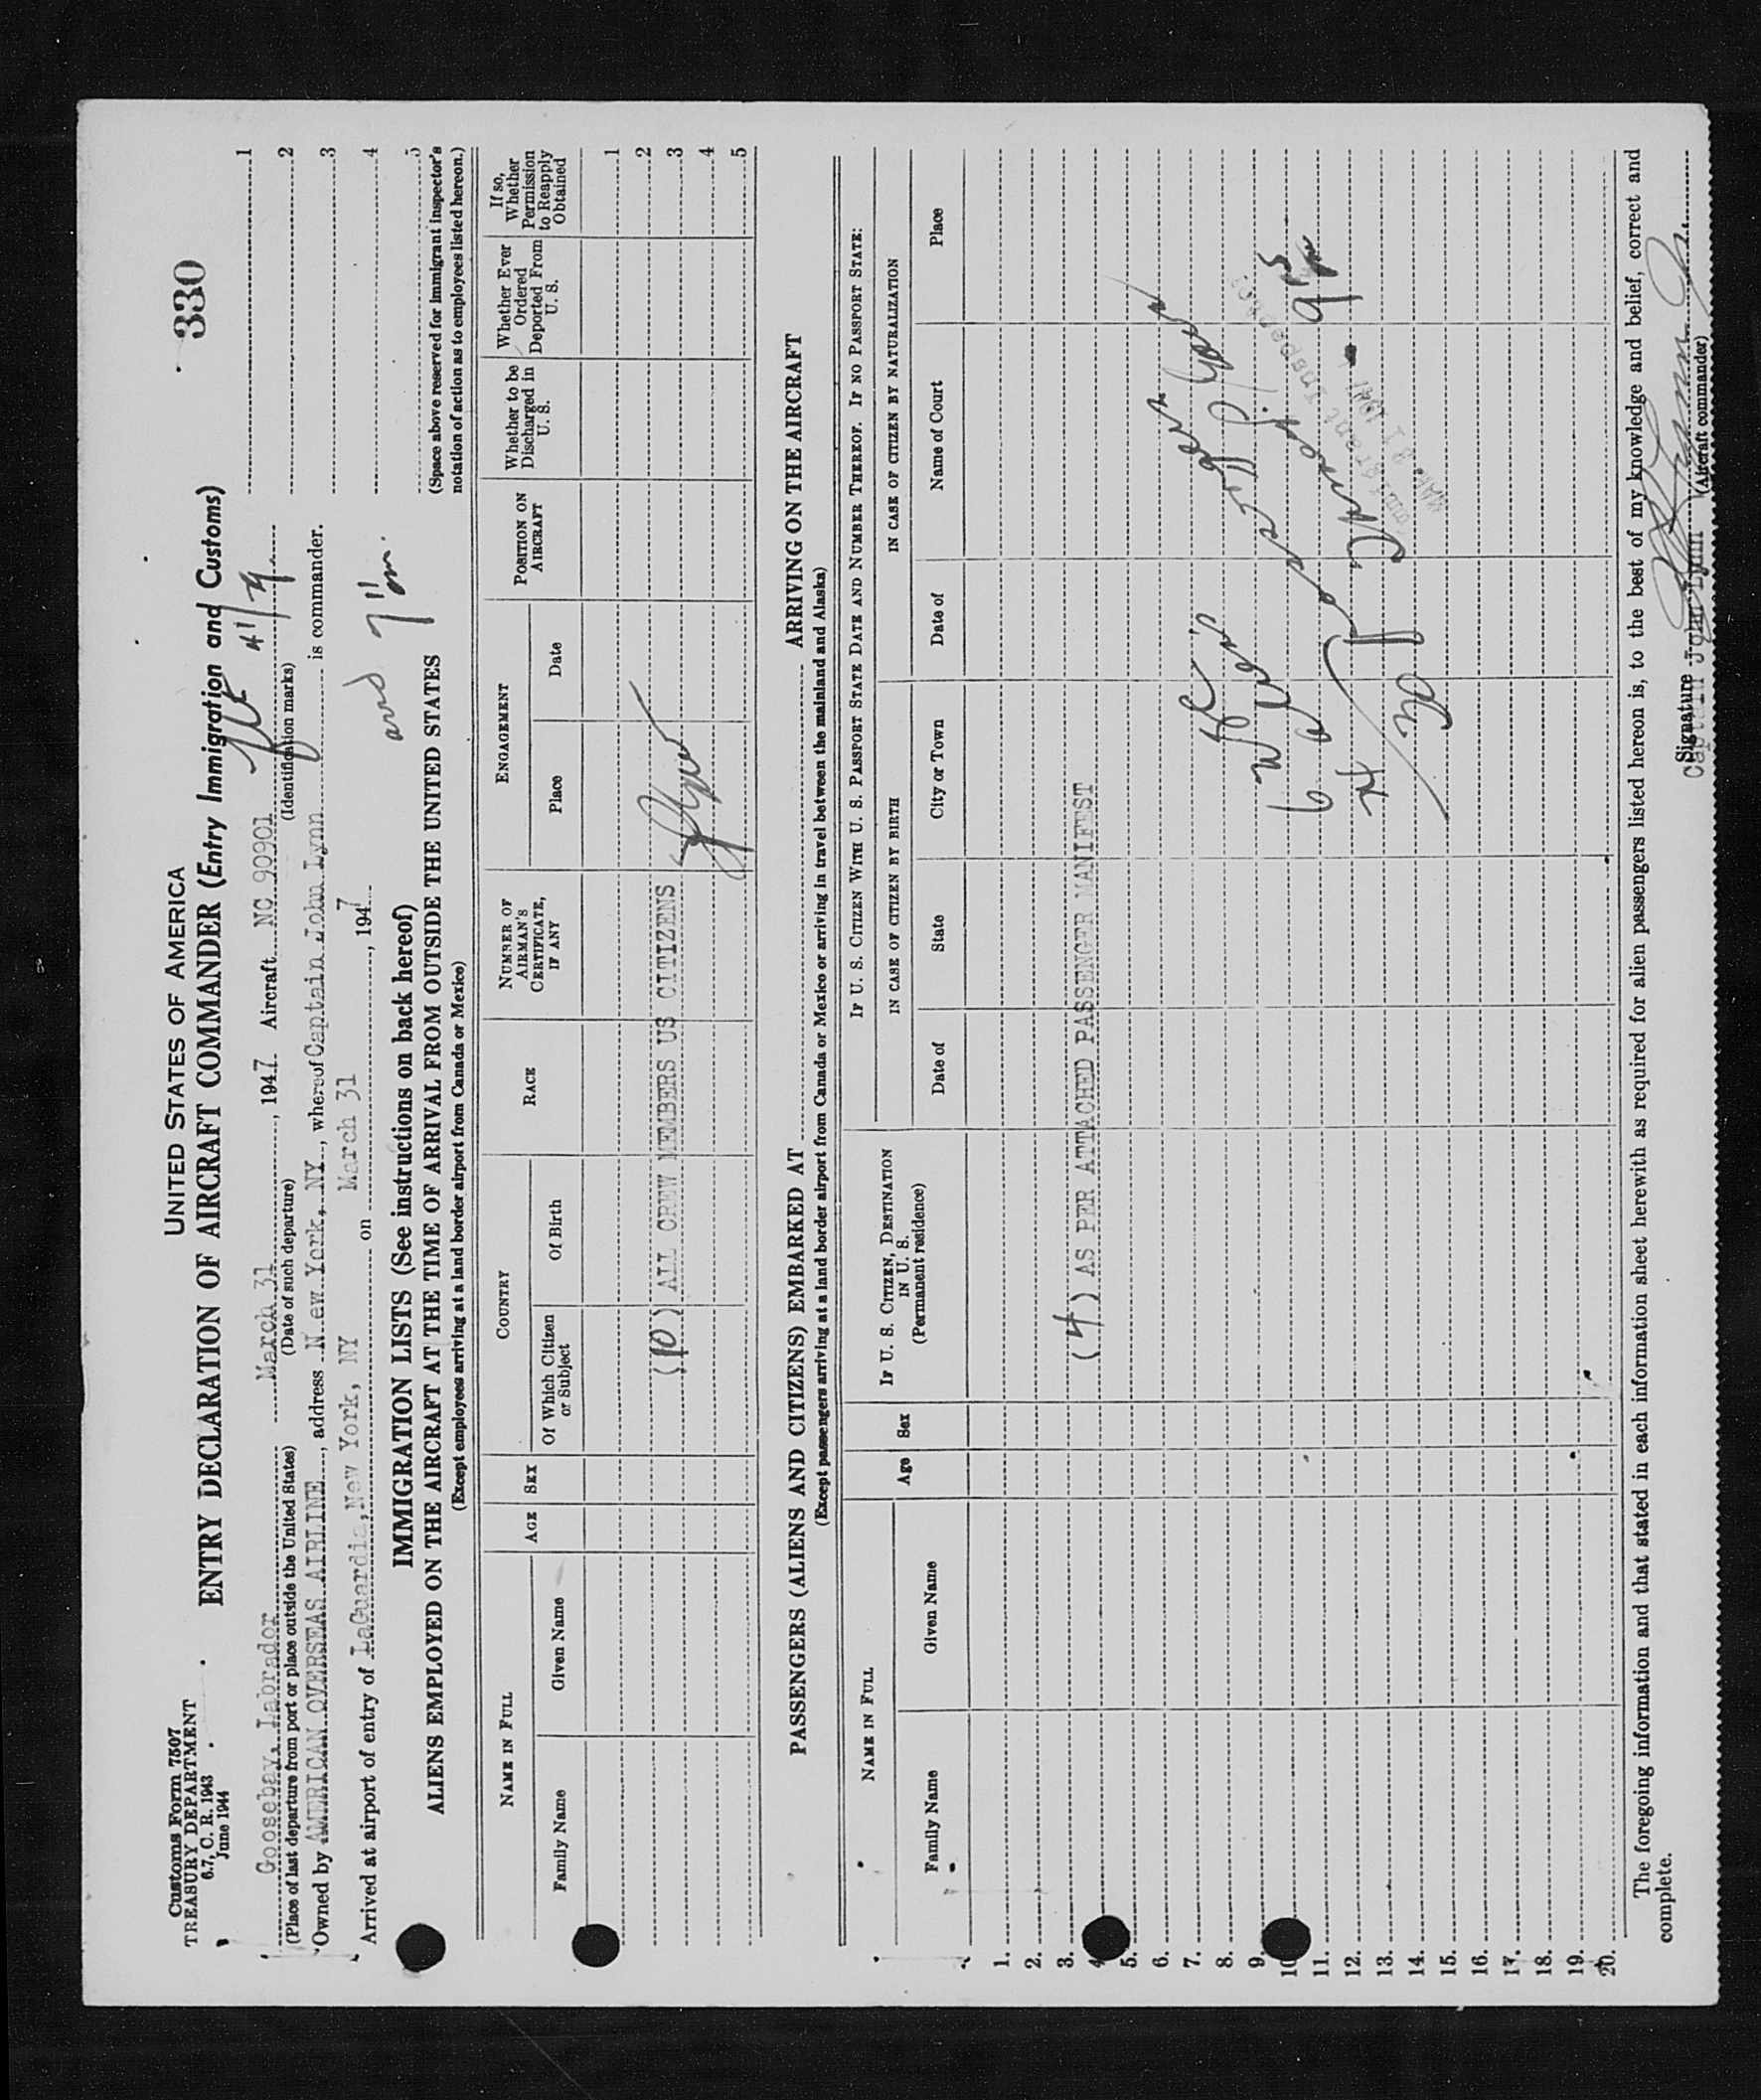 Customs Form 7507
TREASURY DEPARTMENT
6.7, C. R. 1943
June 1944
330
UNITED STATES OF AMERICA
ENTRY DECLARATION OF AIRCRAFT COMMANDER (Entry Immigration and Customs)
Goosebay, Labrador March 31, 1947 Aircraft NC 90901
4/1/47
(Place of last departure from port or place outside the United States) (Date of such departure) (Identification marks)
Owned by AMERICAN OVERSEAS AIRLINE, address N ew York, NY, whereof Captain John Lynn is commander.
Arrived at airport of entry of LaGuardia, New York, NY on March 31, 1947
arrd
1
2
3
4
5
(Space above reserved for immigrant inspector's
notation of action as to employees listed hereon.)
IMMIGRATION LISTS (See instructions on back hereof)
ALIENS EMPLOYED ON THE AIRCRAFT AT THE TIME OF ARRIVAL FROM OUTSIDE THE UNITED STATES
(Except employees arriving at a land border airport from Canada or Mexico)
NAME IN FULL
Family Name
Given Name
AGE
SEX
COUNTRY
Of Which Citizen
or Subject
Of Birth
RACE
NUMBER OF
AIRMAN'S
CERTIFICATE,
IF ANY
ENGAGEMENT
Place
Date
POSITION ON
AIRCRAFT
Whether to be
Discharged in
U. S.
Whether Ever
Ordered
Deported From
U. S.
If so,
Whether
Permission
to Reapply
Obtained
1
2
3
4
5
(10) ALL CREW MEMBERS US CITIZENS
PASSENGERS (ALIENS AND CITIZENS) EMBARKED AT ARRIVING ON THE AIRCRAFT
(Except passengers arriving at a land border airport from Canada or Mexico or arriving in travel between the mainland and Alaska)
NAME IN FULL
Family Name
Given Name
Age
Sex
IF U. S. CITIZEN, DESTINATION
IN U. S.
(Permanent residence)
IF U. S. CITIZEN WITH U. S. PASSPORT STATE DATE AND NUMBER THEREOF. IF NO PASSPORT STATE:
IN CASE OF CITIZEN BY BIRTH
Date of
State
City or Town
IN CASE OF CITIZEN BY NATURALIZATION
Date of
Name of Court
Place
1.
2.
3.
4
5.
6.
7.
8.
9.
10
11.
12.
13.
14.
15.
16.
17.
18.
19.
20.
(4) AS PER ATTACHED PASSENGER MANIFEST
Immigrant Inspector
The foregoing information and that stated in each information sheet herewith as required for alien passengers listed hereon is, to the best of my knowledge and belief, correct and
complete.
Signature
Captain John Lynn
(Aircraft commander)